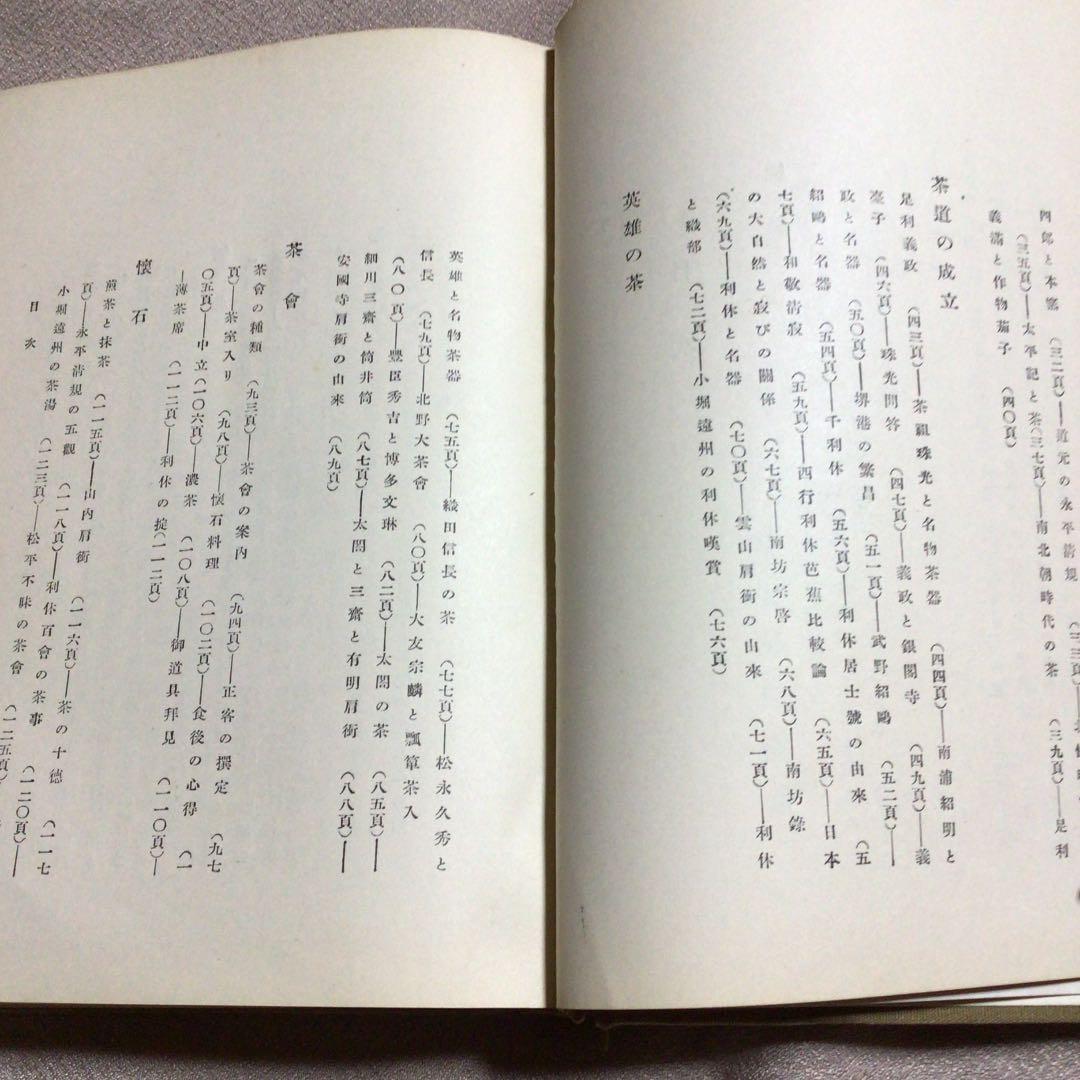 四郎と本窯 (三二頁)――道元の永平清規 (三三頁)――
(三五頁)――太平記と茶(三七頁)――南北朝時代の茶 (三九頁)――足利
義滿と作物茄子 (四〇頁)
茶道の成立
足利義政 (四三頁)――茶祖珠光と名物茶器 (四四頁)――南浦紹明と
臺子 (四六頁)――珠光問答 (四七頁)――義政と銀閣寺 (四九頁)――義
政と名器 (五〇頁)――堺港の繁昌 (五一頁)――武野紹鷗 (五二頁)――
紹鷗と名器 (五四頁)――千利休 (五六頁)――利休居士號の由來 (五
七頁)――和敬清寂 (五九頁)――西行利休芭蕉比較論 (六五頁)――日本
の大自然と寂びの關係 (六七頁)――南坊宗啓 (六八頁)――南坊錄
(六九頁)――利休と名器 (七〇頁)――雲山肩衝の由來 (七一頁)――利休
と織部 (七二頁)――小堀遠州の利休嘆賞 (七六頁)
英雄の茶
英雄と名物茶器 (七五頁)――織田信長の茶 (七七頁)――松永久秀と
信長 (七九頁)――北野大茶會 (八〇頁)――大友宗麟と瓢簞茶入
(八〇頁)――豐臣秀吉と博多文琳 (八二頁)――太閤の茶 (八五頁)――
細川三齋と筒井筒 (八七頁)――太閤と三齋と有明肩衝 (八八頁)――
安國寺肩衝の由來 (八九頁)
茶會
茶會の種類 (九三頁)――茶會の案内 (九四頁)――正客の撰定 (九七
頁)――茶室入り (九八頁)――懷石料理 (一〇二頁)――食後の心得 (一
〇五頁)――中立(一〇六頁)――濃茶 (一〇八頁)――御道具拜見 (一一〇頁)―
―薄茶席 (一一二頁)――利休の掟(一一二頁)
懷石
煎茶と抹茶 (一一五頁)――山内肩衝 (一一六頁)――茶の十德 (一一七
頁)――永平清規の五觀 (一一八頁)――利休百會の茶事 (一二〇頁)――
小堀遠州の茶湯 (一二三頁)――松平不昧の茶會 (一二五頁)
目次